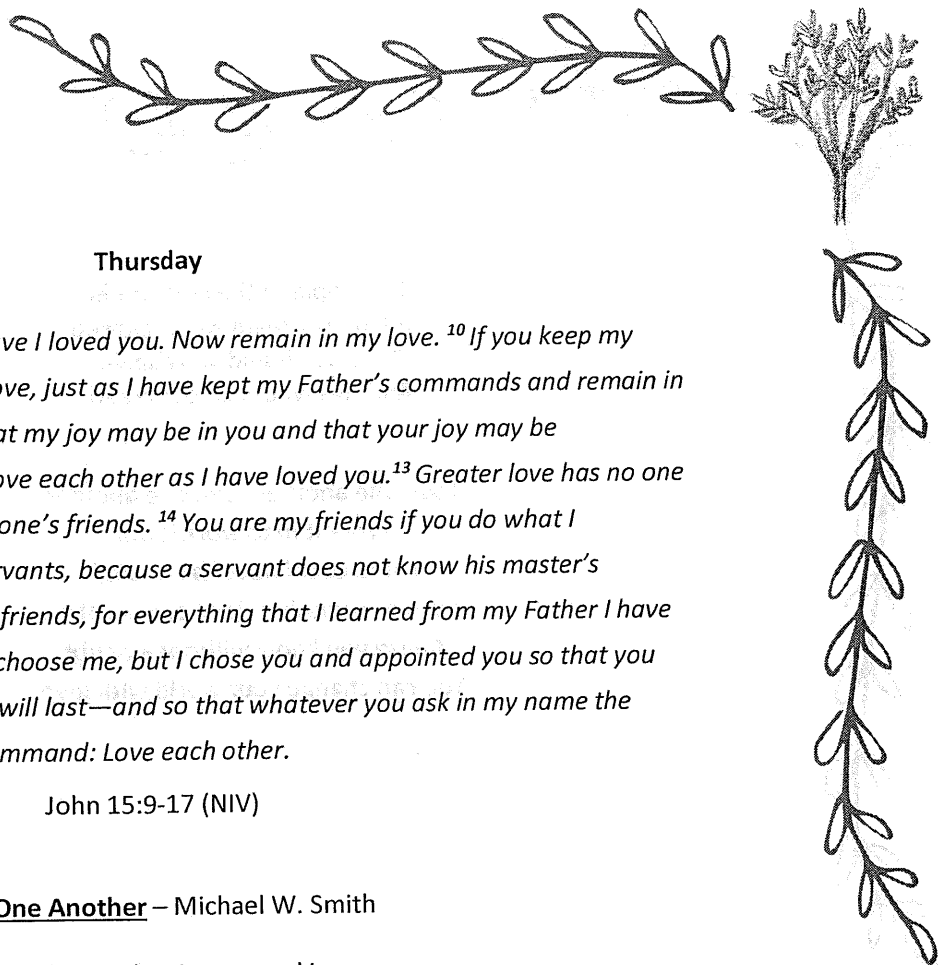 Thursday
ve I loved you. Now remain in my love. ¹⁰ If you keep my
ove, just as I have kept my Father's commands and remain in
at my joy may be in you and that your joy may be
ove each other as I have loved you.¹³ Greater love has no one
one's friends. ¹⁴ You are my friends if you do what I
rvants, because a servant does not know his master's
friends, for everything that I learned from my Father I have
choose me, but I chose you and appointed you so that you
will last—and so that whatever you ask in my name the
mmand: Love each other.
John 15:9-17 (NIV)
One Another – Michael W. Smith